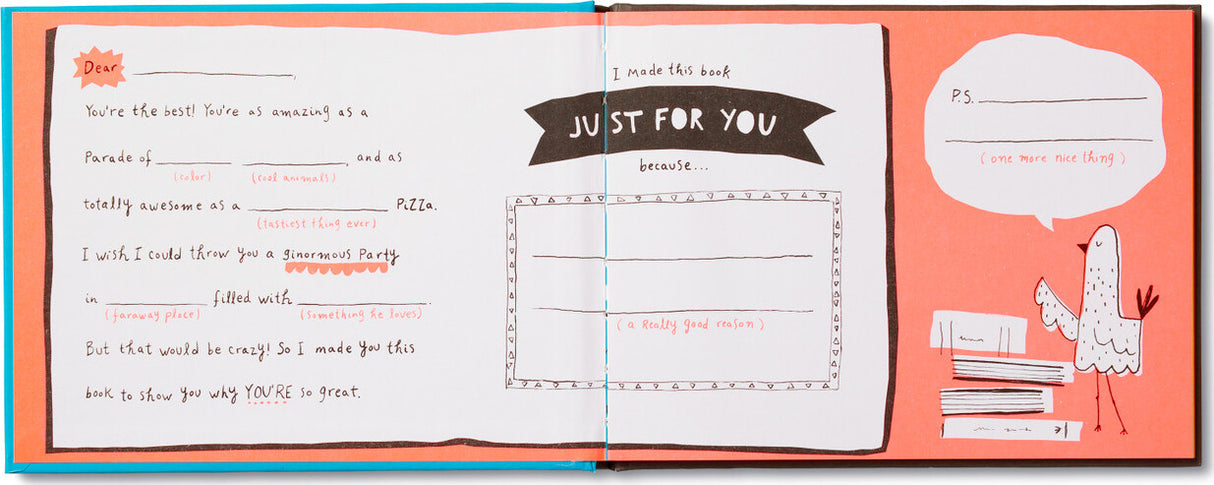 Dear ____________,
You're the best! You're as amazing as a
Parade of ________ ________, and as
(color) (cool animals)
totally awesome as a ____________ PiZZa.
(tastiest thing ever)
I wish I could throw you a ginormous Party
in __________ filled with ____________.
(faraway place) (something he loves)
But that would be crazy! So I made you this
book to show you why YOU'RE so great.
I made this book
JUST FOR YOU
because...
(a Really good reason)
P.S. ____________
(one more nice thing)